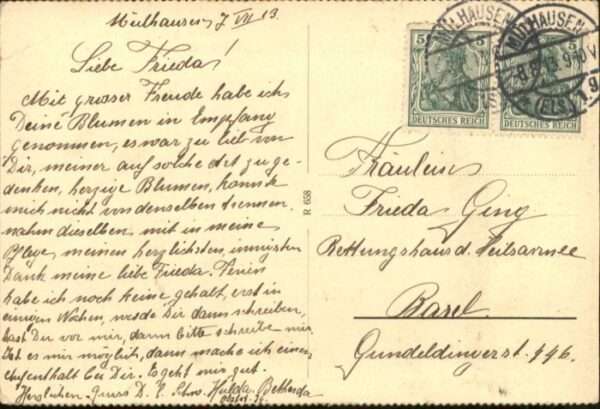 Mülhausen, 7 VII 13.
Liebe Frieda!
Mit grosser Freude habe ich
Deine Blumen in Empfang
genommen, es war zu lieb von
Dir, meiner auf solche Art zu ge-
denken, herzige Blumen, konnte
mich nicht von denselben trennen,
nahm dieselben mit in meine
Pflege, meinen herzlichsten, innigsten
Dank meine liebe Frieda. Ferien
habe ich noch keine gehabt, erst in
einigen Wochen, werde Dir dann schreiben,
hast Du vor mir, dann bitte schreibe mir.
Ist es mir möglich, dann mache ich einen
Aufenthalt bei Dir. Es geht mir gut.
Herzlichen Gruss D. l. Schw. Hulda Bethesda
R 658
5 5
DEUTSCHES REICH
5
DEUTSCHES REICH
MÜLHAUSEN
MÜLHAUSEN
13 9-10 V
(ELS)
Fräulein
Frieda Ging
Rettungshaus d. Heilsarmee
Basel.
Gundeldingerst. 446.